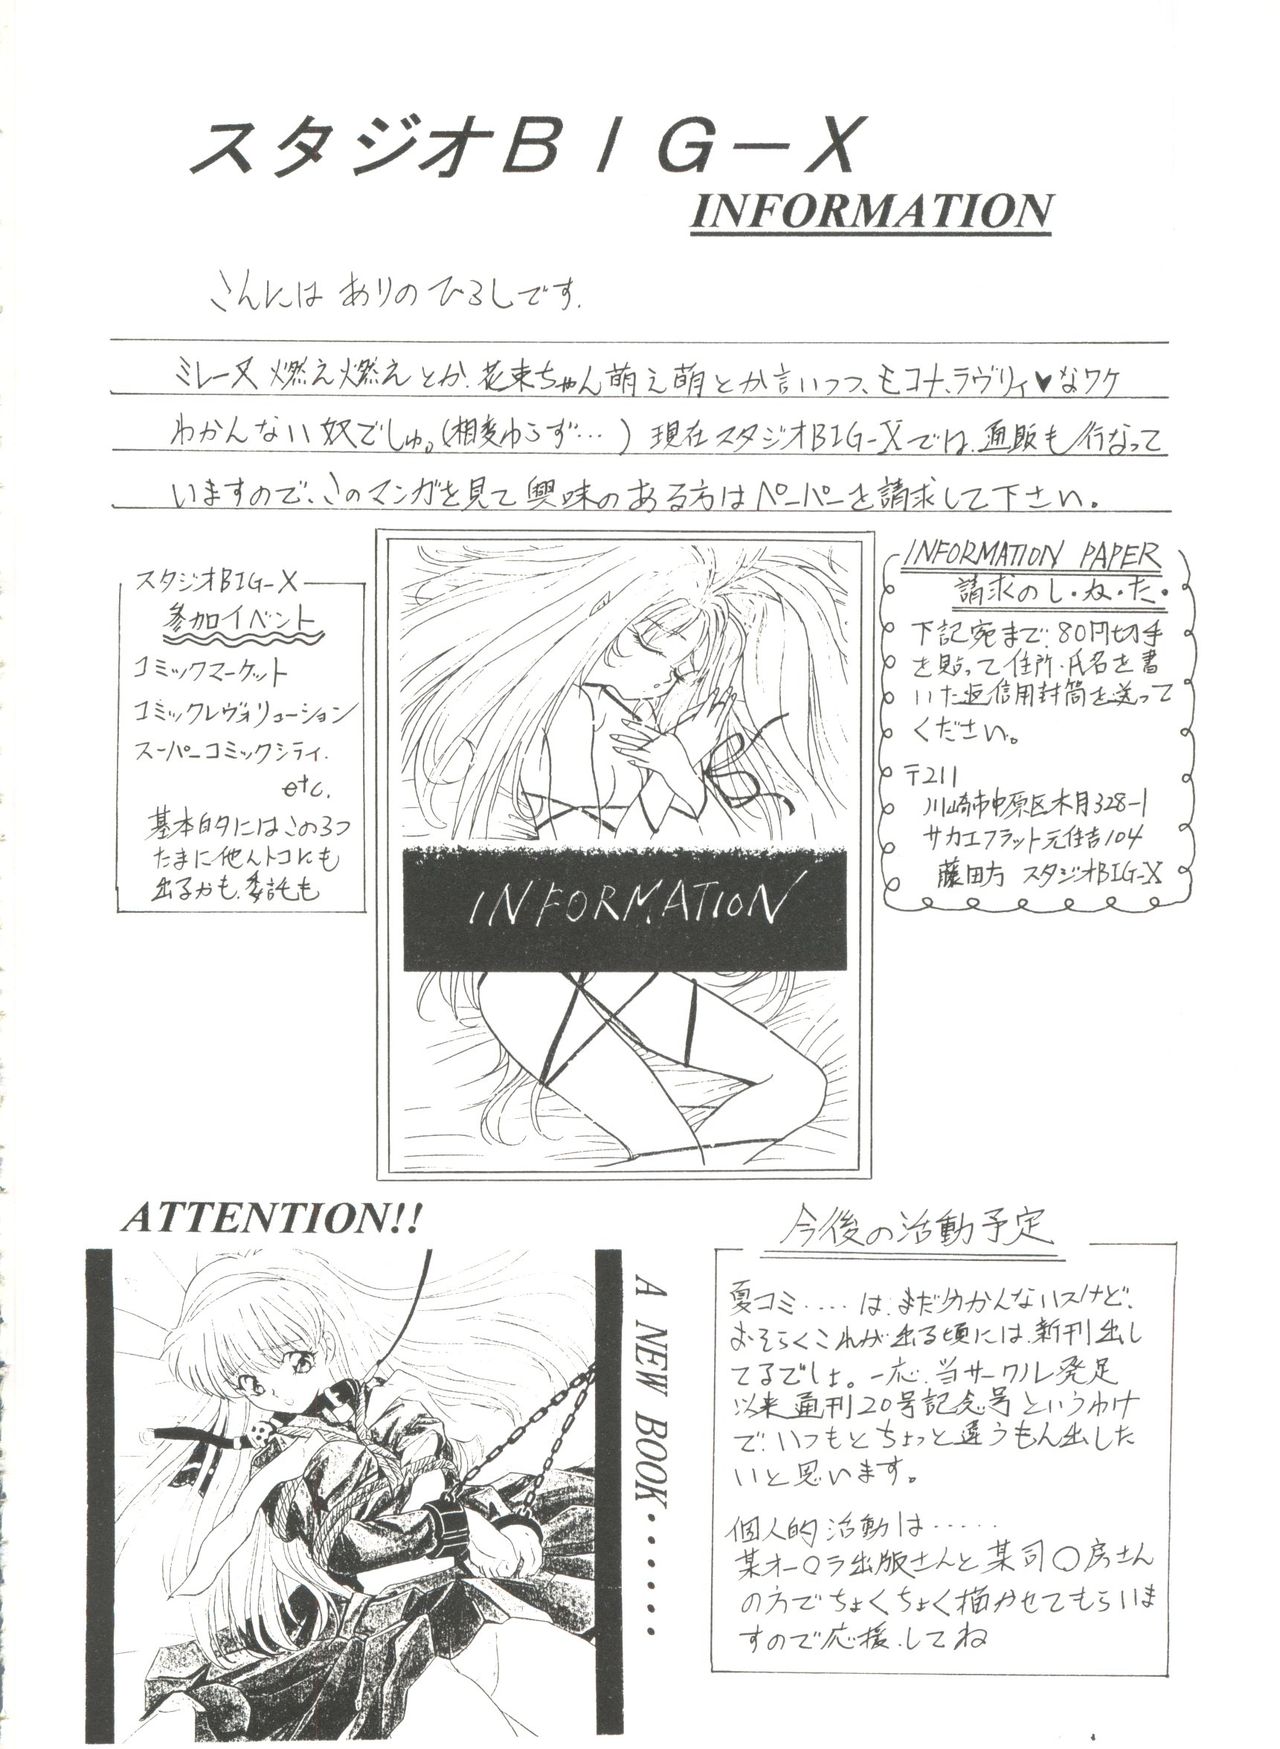 スタジオBIG-X
INFORMATION
こんにには ありのひろしです.
ミレーヌ燃え燃えとか、花束ちゃん萌え萌とか言いつつ、モコナ、ラヴリィ♥なワケ
わかんない奴でしゅ。(相変わらず…) 現在スタジオBIG-Xでは、通販も行なって
いますので、このマンガを見て興味のある方はペーパーを請求して下さい。
スタジオBIG-X
参加イベント
コミックマーケット
コミックレヴォリューション
スーパーコミックシティ.
etc.
基本的にはこの3つ
たまに他んトコにも
出るかも、委託も
INFORMATION
INFORMATION PAPER
請求のし・ね・た・
下記宛まで、80円切手
を貼って住所・氏名を書
いた返信用封筒を送って
ください。
〒211
川崎市中原区木月328-1
サカエフラット元住吉104
藤田方 スタジオBIG-X
ATTENTION!!
A NEW BOOK.......
今後の活動予定
夏コミ....は、まだ分かんないスけど、
おそらくこれが出る頃には、新刊出し
てるでしょ。一応、当サークル発足
以来通刊20号記念号というわけ
で、いつもとちょっと違うもん出した
いと思います。
個人的活動は……
某オー〇ラ出版さんと某司〇房さん
の方でちょくちょく描かせてもらいま
すので応援してね